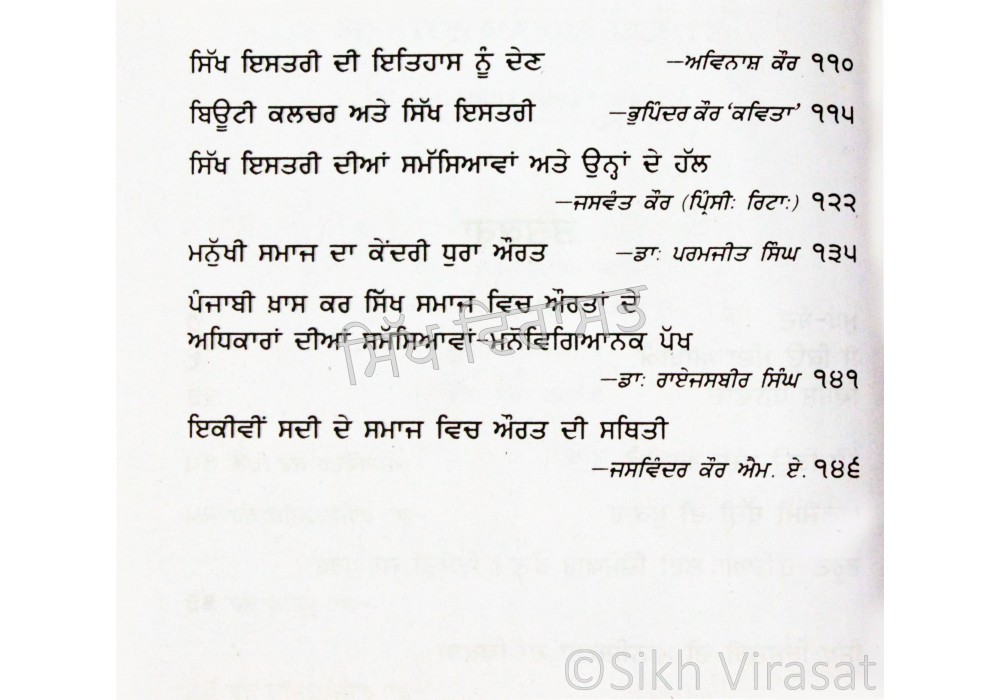 ਸਿੱਖ ਇਸਤਰੀ ਦੀ ਇਤਿਹਾਸ ਨੂੰ ਦੇਣ —ਅਵਿਨਾਸ਼ ਕੌਰ ੧੧੦
ਬਿਊਟੀ ਕਲਚਰ ਅਤੇ ਸਿੱਖ ਇਸਤਰੀ —ਭੁਪਿੰਦਰ ਕੌਰ ‘ਕਵਿਤਾ’ ੧੧੫
ਸਿੱਖ ਇਸਤਰੀ ਦੀਆਂ ਸਮੱਸਿਆਵਾਂ ਅਤੇ ਉਨ੍ਹਾਂ ਦੇ ਹੱਲ
—ਜਸਵੰਤ ਕੌਰ (ਪ੍ਰਿੰਸੀ: ਰਿਟਾ:) ੧੨੨
ਮਨੁੱਖੀ ਸਮਾਜ ਦਾ ਕੇਂਦਰੀ ਧੁਰਾ ਔਰਤ —ਡਾ: ਪਰਮਜੀਤ ਸਿੰਘ ੧੩੫
ਪੰਜਾਬੀ ਖ਼ਾਸ ਕਰ ਸਿੱਖ ਸਮਾਜ ਵਿਚ ਔਰਤਾਂ ਦੇ
ਅਧਿਕਾਰਾਂ ਦੀਆਂ ਸਮੱਸਿਆਵਾਂ—ਮਨੋਵਿਗਿਆਨਕ ਪੱਖ
—ਡਾ: ਰਾਏਜਸਬੀਰ ਸਿੰਘ ੧੪੧
ਇਕੀਵੀਂ ਸਦੀ ਦੇ ਸਮਾਜ ਵਿਚ ਔਰਤ ਦੀ ਸਥਿਤੀ
—ਜਸਵਿੰਦਰ ਕੌਰ ਐਮ. ਏ. ੧੪੬
ਸਿੱਖ ਵਿਰਾਸਤ
©Sikh Virasat